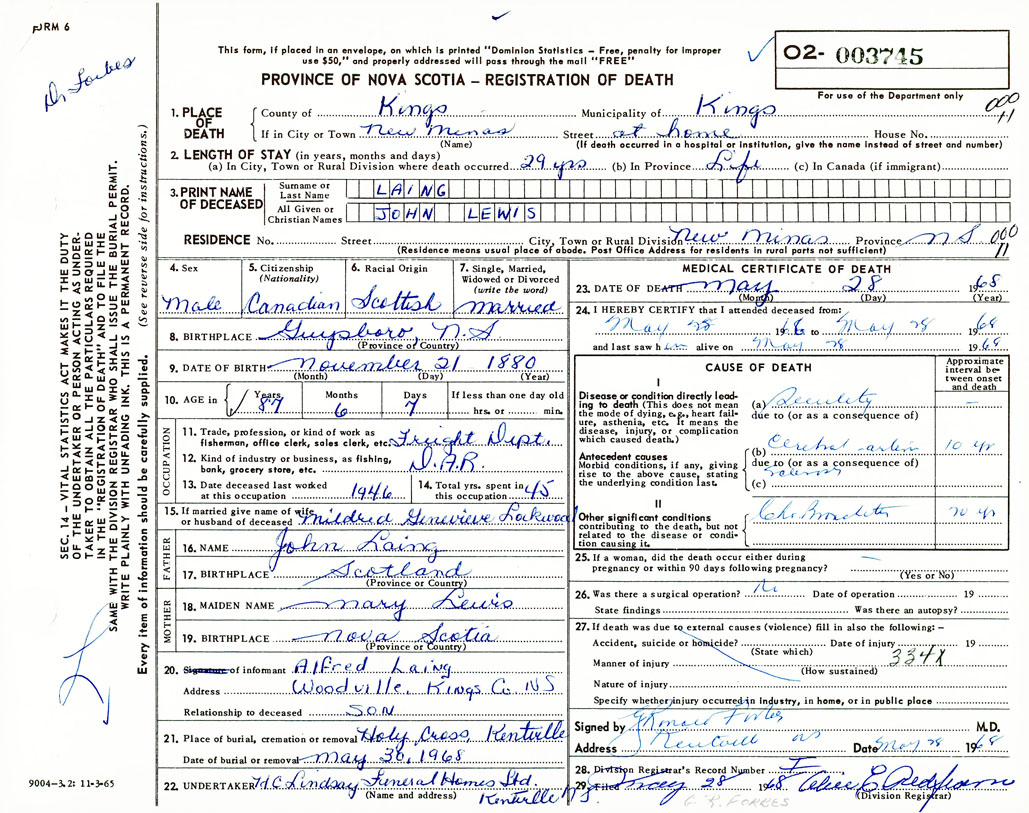 FORM 6
Dr Forbes
This form, if placed in an envelope, on which is printed "Dominion Statistics – Free, penalty for improper
use $50," and properly addressed will pass through the mail "FREE"
PROVINCE OF NOVA SCOTIA – REGISTRATION OF DEATH
O2- 003745
For use of the Department only
000
11
1. PLACE OF DEATH
County of Kings Municipality of Kings
If in City or Town New Minas Street at home House No.
(Name) (If death occurred in a hospital or institution, give the name instead of street and number)
2. LENGTH OF STAY (in years, months and days)
(a) In City, Town or Rural Division where death occurred 29 yrs (b) In Province Life (c) In Canada (if immigrant)
3. PRINT NAME OF DECEASED
Surname or Last Name LAING
All Given or Christian Names JOHN LEWIS
RESIDENCE No. Street City, Town or Rural Division New Minas Province NS
000
11
(Residence means usual place of abode. Post Office Address for residents in rural parts not sufficient)
4. Sex
Male
5. Citizenship
(Nationality)
Canadian
6. Racial Origin
Scottish
7. Single, Married,
Widowed or Divorced
(write the word)
Married
8. BIRTHPLACE Guysboro, N.S
(Province of Country)
9. DATE OF BIRTH November 21 1880
(Month) (Day) (Year)
10. AGE in Years 87 Months 6 Days 7 If less than one day old
hrs. or min.
OCCUPATION
11. Trade, profession, or kind of work as
fisherman, office clerk, sales clerk, etc. Freight Dept.
12. Kind of industry or business, as fishing,
bank, grocery store, etc. D.A.R.
13. Date deceased last worked
at this occupation 1946
14. Total yrs. spent in
this occupation 45
15. If married give name of wife
or husband of deceased Mildred Genevieve Lockwood
FATHER
16. NAME John Laing
17. BIRTHPLACE Scotland
(Province or Country)
MOTHER
18. MAIDEN NAME Mary Lewis
19. BIRTHPLACE Nova Scotia
(Province or Country)
20. Signature of informant Alfred Laing
Address Woodville, Kings Co. NS
Relationship to deceased SON
21. Place of burial, cremation or removal Holy Cross Kentville
Date of burial or removal May 30, 1968
22. UNDERTAKER H C Lindsay Funeral Homes Ltd.
(Name and address) Kentville N S.
MEDICAL CERTIFICATE OF DEATH
23. DATE OF DEATH May 28 1968
(Month) (Day) (Year)
24. I HEREBY CERTIFY that I attended deceased from:
May 28 19 to May 28 1968
and last saw h alive on May 28 1968
CAUSE OF DEATH
Approximate
interval be-
tween onset
and death
I
Disease or condition directly lead-
ing to death (This does not mean
the mode of dying, e.g., heart fail-
ure, asthenia, etc. It means the
disease, injury, or complication
which caused death.)
(a) Senility –
due to (or as a consequence of)
Antecedent causes
Morbid conditions, if any, giving
rise to the above cause, stating
the underlying condition last.
(b) 10 yr
due to (or as a consequence of)
(c)
II
Other significant conditions
contributing to the death, but not
related to the disease or condi-
tion causing it.
Chr. Bronchitis
25. If a woman, did the death occur either during
pregnancy or within 90 days following pregnancy? —
(Yes or No)
26. Was there a surgical operation? No Date of operation 19
State findings Was there an autopsy?
27. If death was due to external causes (violence) fill in also the following: –
Accident, suicide or homicide? Date of injury 19
(State which)
334X
Manner of injury
(How sustained)
Nature of injury
Specify whether injury occurred in industry, in home, or in public place
Signed by Forbes M.D.
Address Kentville NS Date May 28 1968
28. Division Registrar's Record Number
29. Filed 28 1968 Alice E
(Division Registrar)
FORBES
SEC. 14 – VITAL STATISTICS ACT MAKES IT THE DUTY
OF THE UNDERTAKER OR PERSON ACTING AS UNDER-
TAKER TO OBTAIN ALL THE PARTICULARS REQUIRED
IN THE "REGISTRATION OF DEATH" AND TO FILE THE
SAME WITH THE DIVISION REGISTRAR WHO SHALL ISSUE THE BURIAL PERMIT.
WRITE PLAINLY WITH UNFADING INK. THIS IS A PERMANENT RECORD.
Every item of information should be carefully supplied. (See reverse side for instructions.)
9004-3.2: 11-3-65